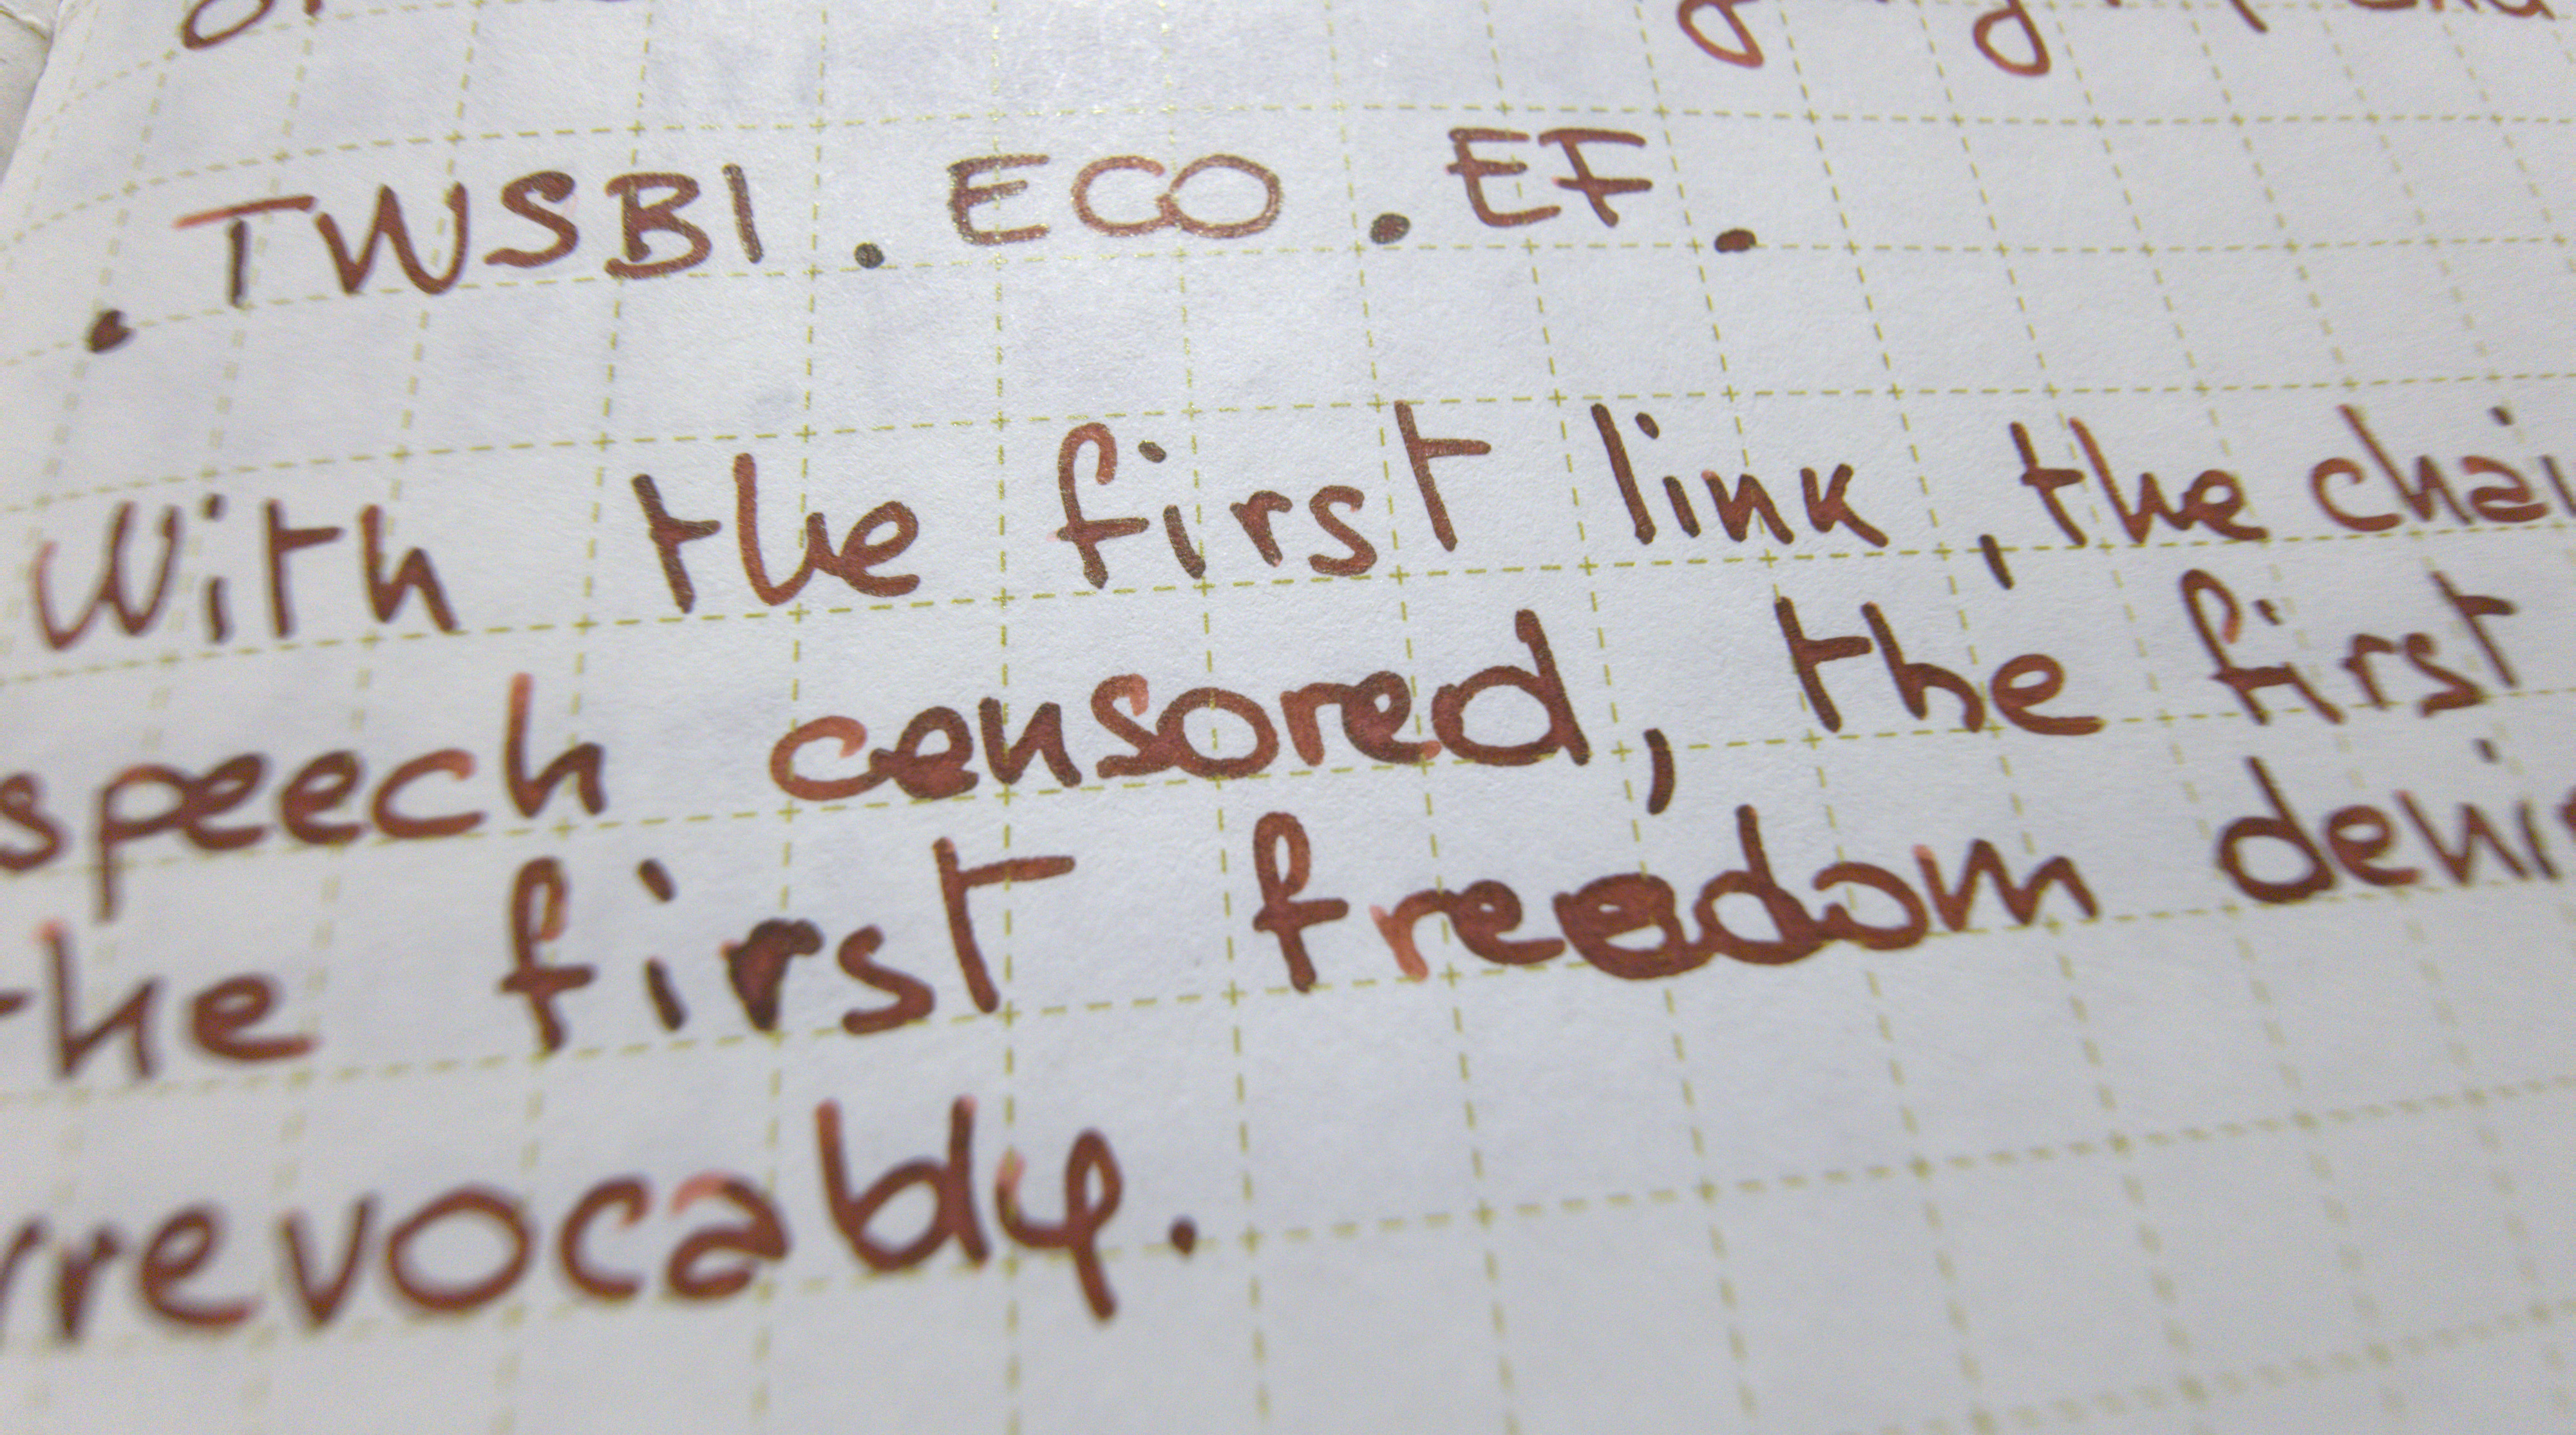 . TWSBI . ECO . EF .
With the first link , the chai
speech censored, the first
the first freedom denie
rrevocably.